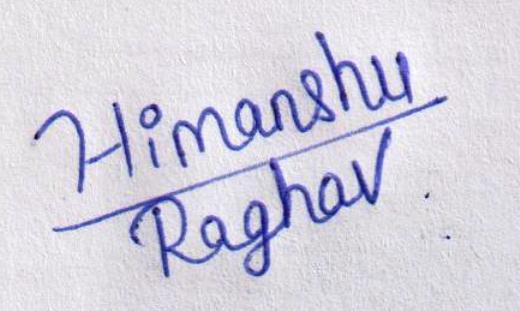 Himanshu
Raghav